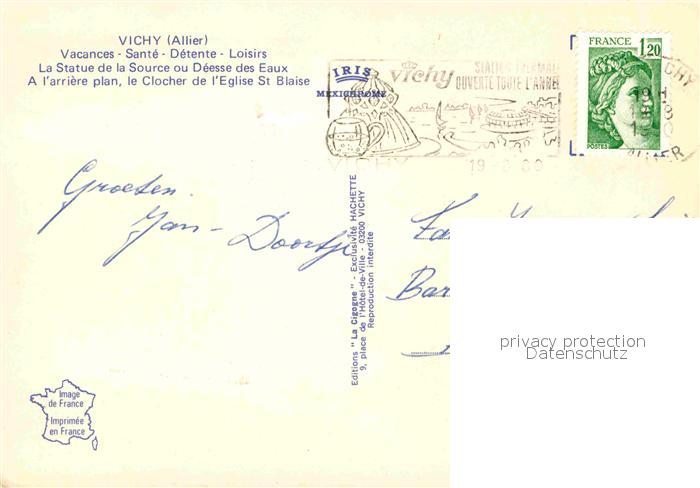 VICHY (Allier)
Vacances - Santé - Détente - Loisirs
La Statue de la Source ou Déesse des Eaux
A l'arrière plan, le Clocher de l'Eglise St Blaise
IRIS
MEXICHROME
vichy
STATION THERMALE
OUVERTE TOUTE L'ANNÉE
VICHY
FRANCE 1,20
POSTES
ALLIER
Groeten
Jan-Doortje
Fa
Bar
Editions "La Cigogne" - Exclusivité HACHETTE
9, place de l'Hôtel-de-Ville - 03200 VICHY
Reproduction interdite
Image
de France
Imprimée
en France
privacy protection
Datenschutz